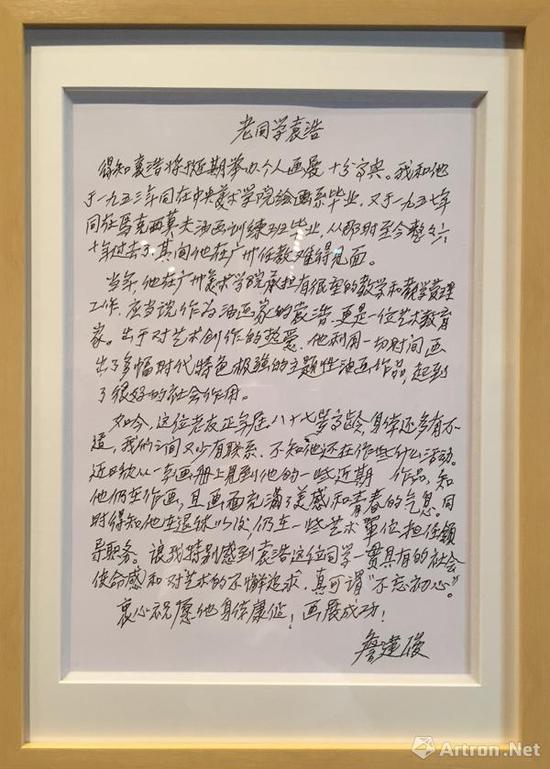 老同学袁浩
得知袁浩将于近期举办个人画展十分高兴。我和他
于一九五三年同在中央美术学院绘画系毕业，又于一九五七年
同在马克西莫夫油画训练班毕业，从那时至今整整六
十年过去了，其间他在广州任教难得见面。
当年，他在广州美术学院承担有很重的教学和教学管理
工作，应当说作为油画家的袁浩，更是一位艺术教育
家。出于对艺术创作的热爱，他利用一切时间画
出了多幅时代特色极强的主题性油画作品，起到
了很好的社会作用。
如今，这位老友正年届八十七岁高龄，身体还多有不
适，我们之间又少有联系，不知他还在作些什么活动。
近日欣从一本画册上见到他的一些近期 作品，知
他仍在作画，且画面充满了美感和青春的气息。同
时得知他在退休以后，仍在一些艺术单位担任领
导职务。让我特别感到袁浩这位同学一贯具有的社会
使命感和对艺术的不懈追求，真可谓“不忘初心”。
衷心祝愿他身体康健！画展成功！
詹建俊
Artron.Net